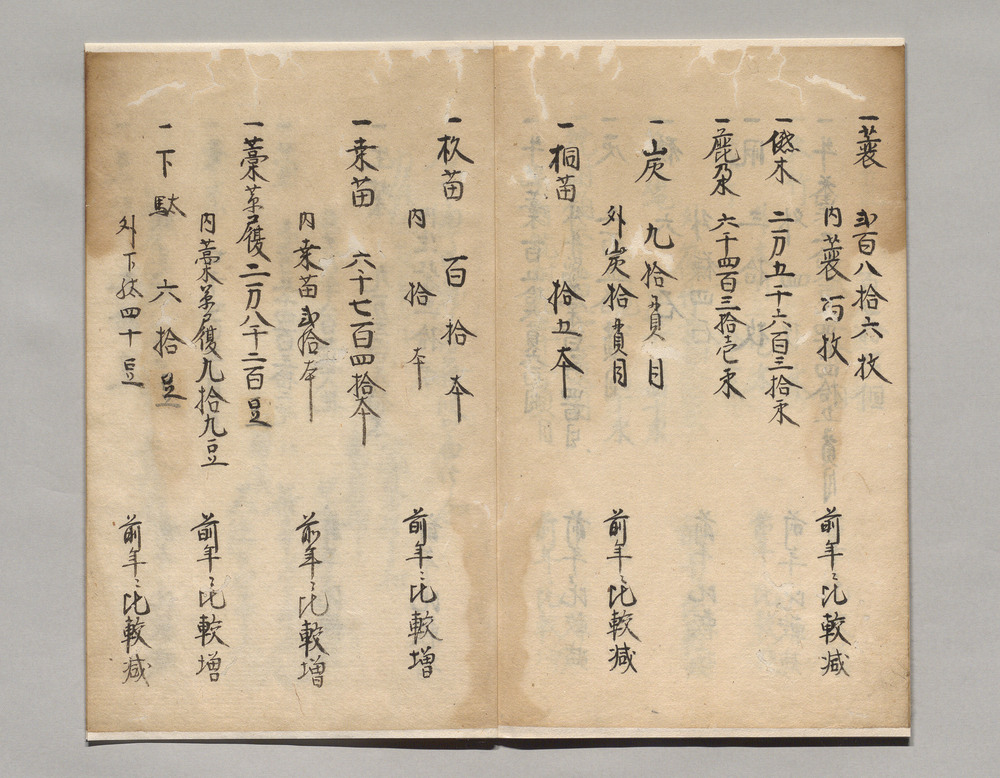 一蓑 弐百八拾六枚
内蓑 百枚 前年ニ比較減
一燃木 二万五千六百三拾束
一麁朶 六千四百三拾壱束
一炭 九拾貫目
外炭拾貫目 前年ニ比較減
一桐苗 拾五本
一杉苗 百拾本
内 拾本 前年ニ比較増
一桒苗 六千七百四拾本
内桒苗弐拾本 前年ニ比較増
一藁草履二万八千二百足
内藁草履九拾九足 前年ニ比較増
一下駄 六拾足
外下駄四十足 前年ニ比較減